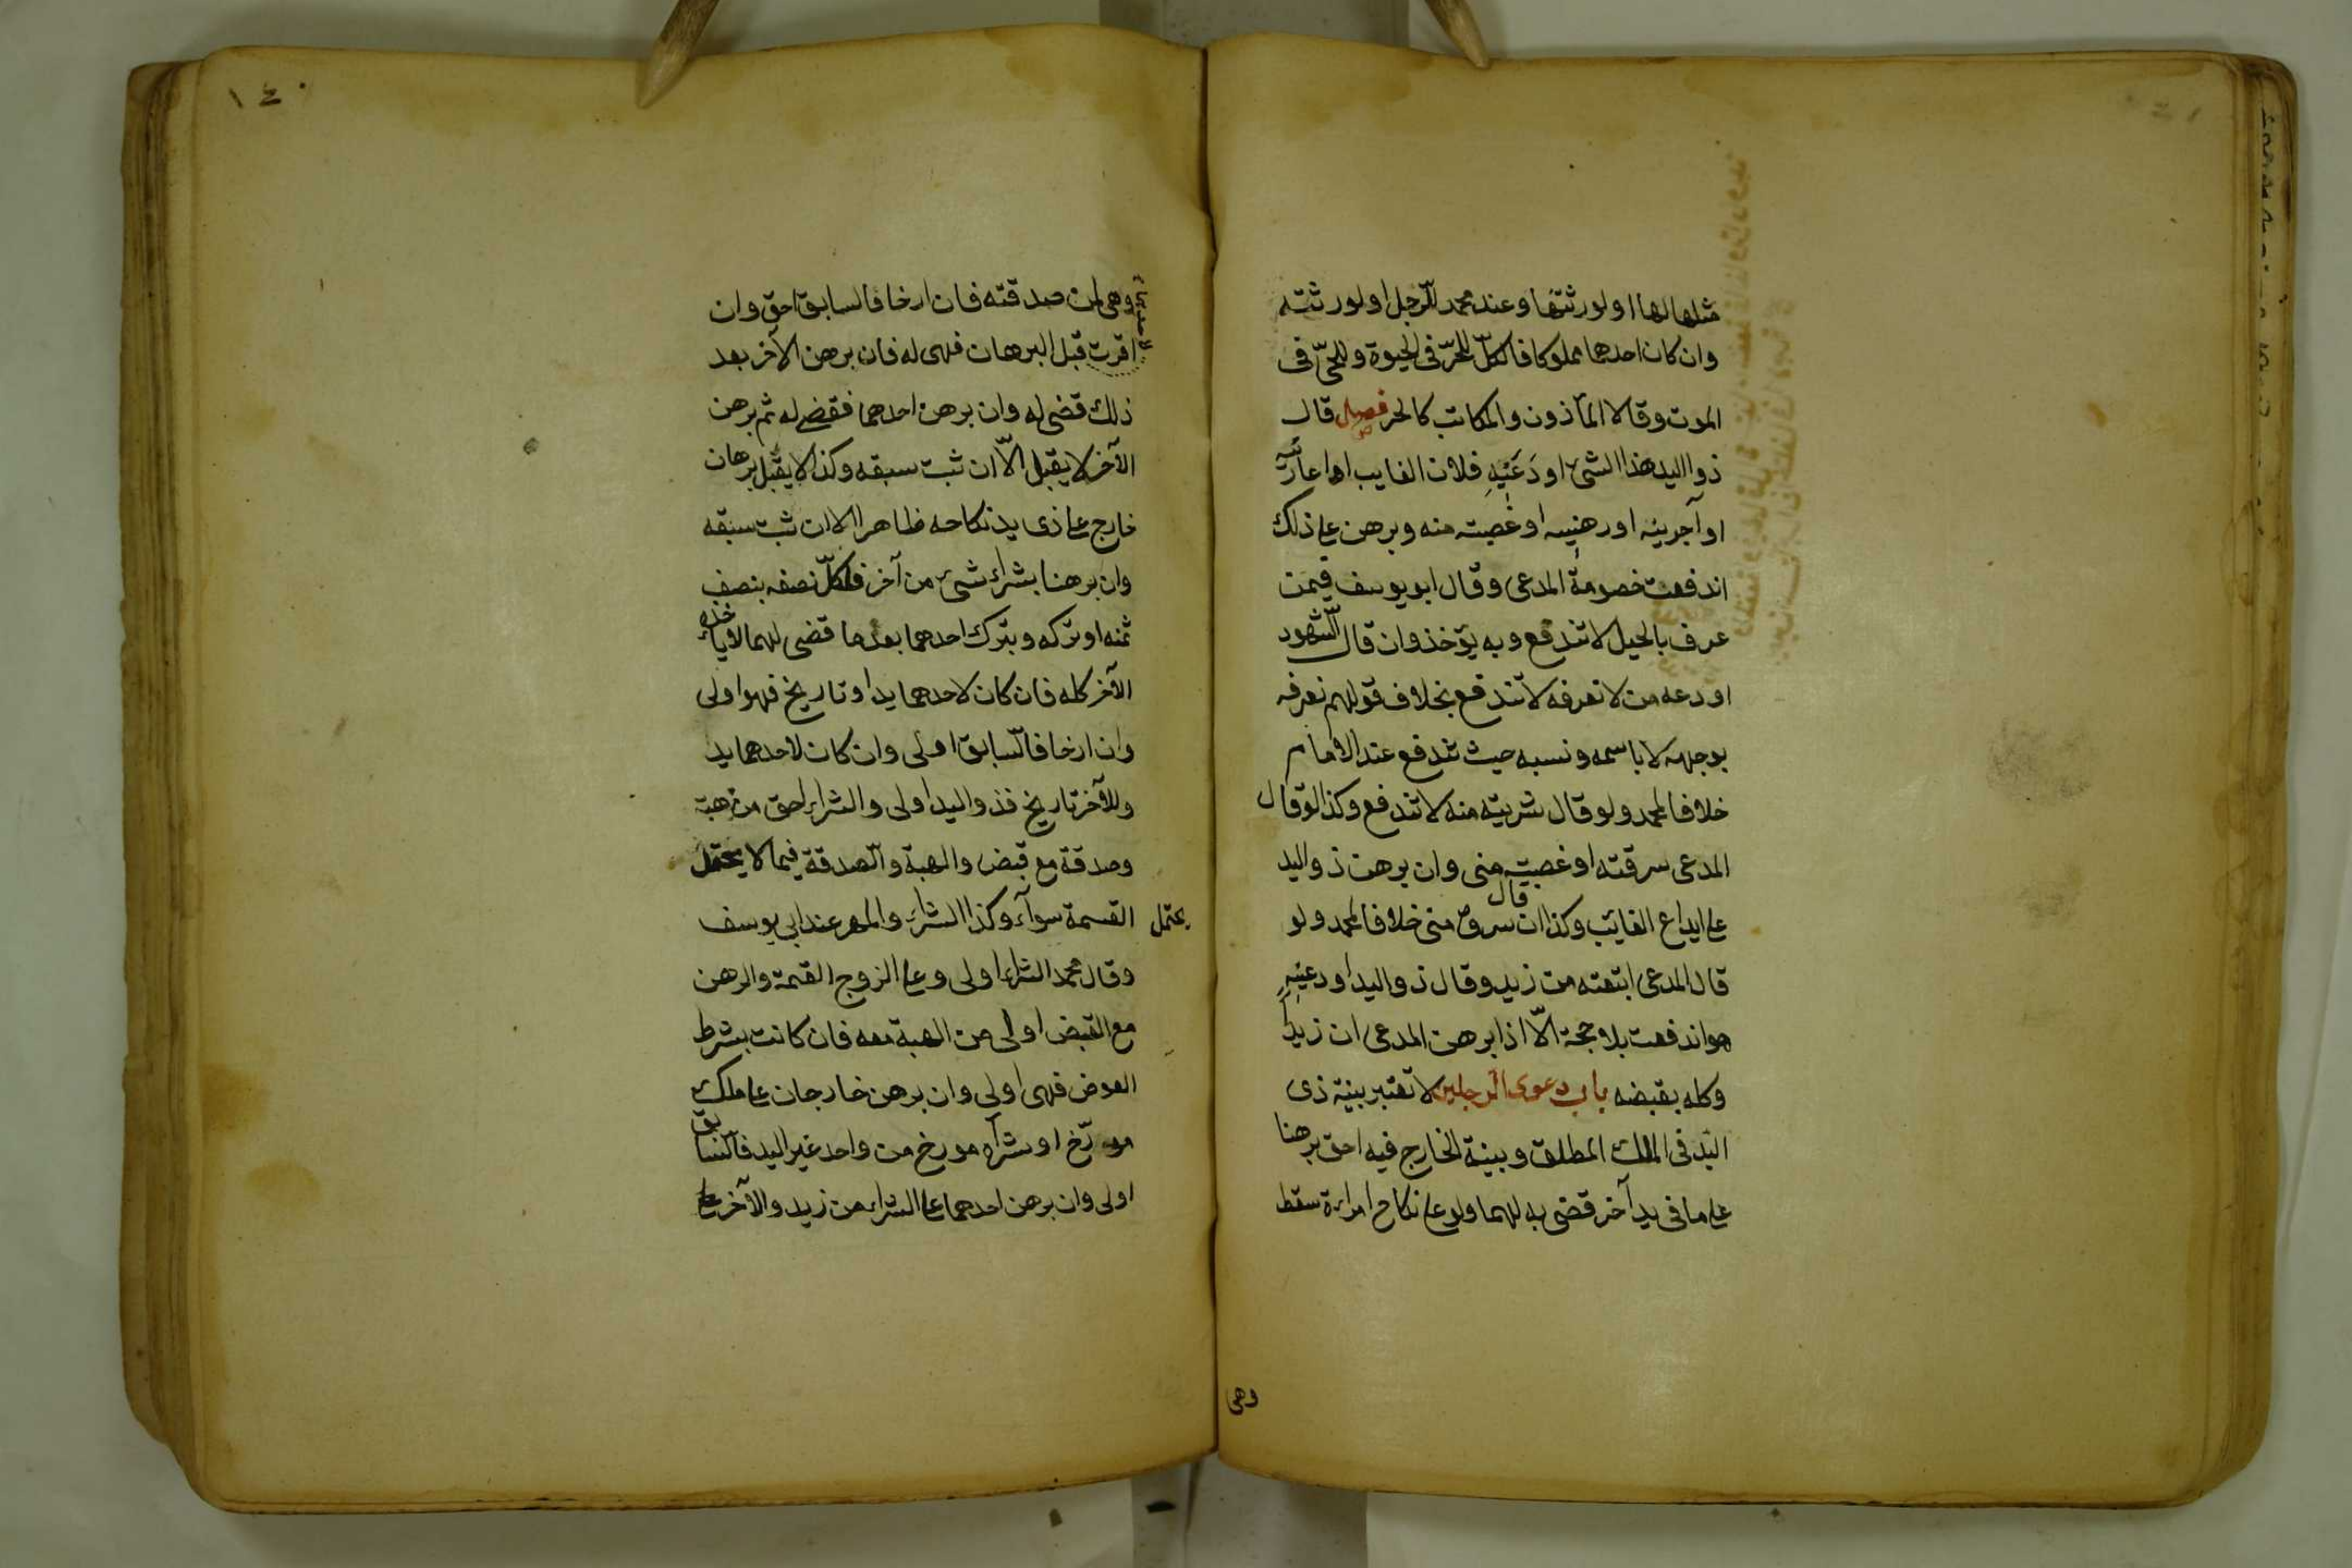 مثلها لها او لورثتها وعند محمد للرجل او لورثته
وان كان احدهما مملوكا فالكلّ للحرّ فى الحيوة وللحىّ فى
الموت وقالا المأذون والمكاتب كالحر فصل قال
ذو اليد هذا الشئ اودعنيه فلان الغايب او اعارنيه
او آجرنيه او رهنيه او غصبته منه وبرهن على ذلك
اندفعت خصومة المدعى وقال ابو يوسف فيمن
عرف بالحيل لا تندفع وبه يؤخذ وان قال الشهود
اودعه من لا نعرفه لا تندفع بخلاف قولهم نعرفه
بوجهه لا باسمه ونسبه حيث تندفع عند الامام
خلافا لمحمد ولو قال شريته منه لا تندفع وكذا لو قال
المدعى سرقته او غصبته منى وان برهن ذو اليد
على ايداع الغايب وكذا ان قال سرق منى خلافا لمحمد ولو
قال المدعى ابتعته من زيد وقال ذو اليد اودعنيه
هو اندفعت بلا حجة الّا اذا برهن المدعى ان زيدا
وكله بقبضه باب دعوى الرجلين لا تعتبر بينة ذى
اليد فى الملك المطلق وبينة الخارج فيه احق برهنا
على ما فى يد آخر قضى به لهما ولو على نكاح امراءة سقطا
وهى
١٤٠
وهى لمن صدقته فان ارخا فالسابق احق وان
اقرت قبل البرهان فهى له فان برهن الآخر بعد
ذلك قضى له وان برهن احدهما فقضى له ثم برهن
الآخر لا يقبل الّا ان ثبت سبقه وكذا لا يقبل برهان
خارج على ذى يد نكاحه ظاهر الا ان ثبت سبقه
وان برهنا بشراء شئ من آخر فلكلّ نصفه بنصف
ثمنه او تركه وبترك احدهما بعد ما قضى لهما لا ياخذه
الآخر كله فان كان لاحدهما يد او تاريخ فهو اولى
وان ارخا فالسابق اولى وان كان لاحدهما يد
وللآخر تاريخ فذو اليد اولى والشراء احق من هبة
وصدقة مع قبض والهبة والصدقة فيما لا يحتمل
يحتمل
القسمة سوآء وكذا الشراء والمهر عند ابى يوسف
وقال محمد الشراء اولى وعلى الزوج القيمة والرهن
مع القبض اولى من الهبة معه فان كانت بشرط
العوض فهى اولى وان برهن خارجان على ملك
مورّخ او شرآء مورخ من واحد غير اليد فالسابق
اولى وان برهن احدهما على الشراء من زيد والآخر على